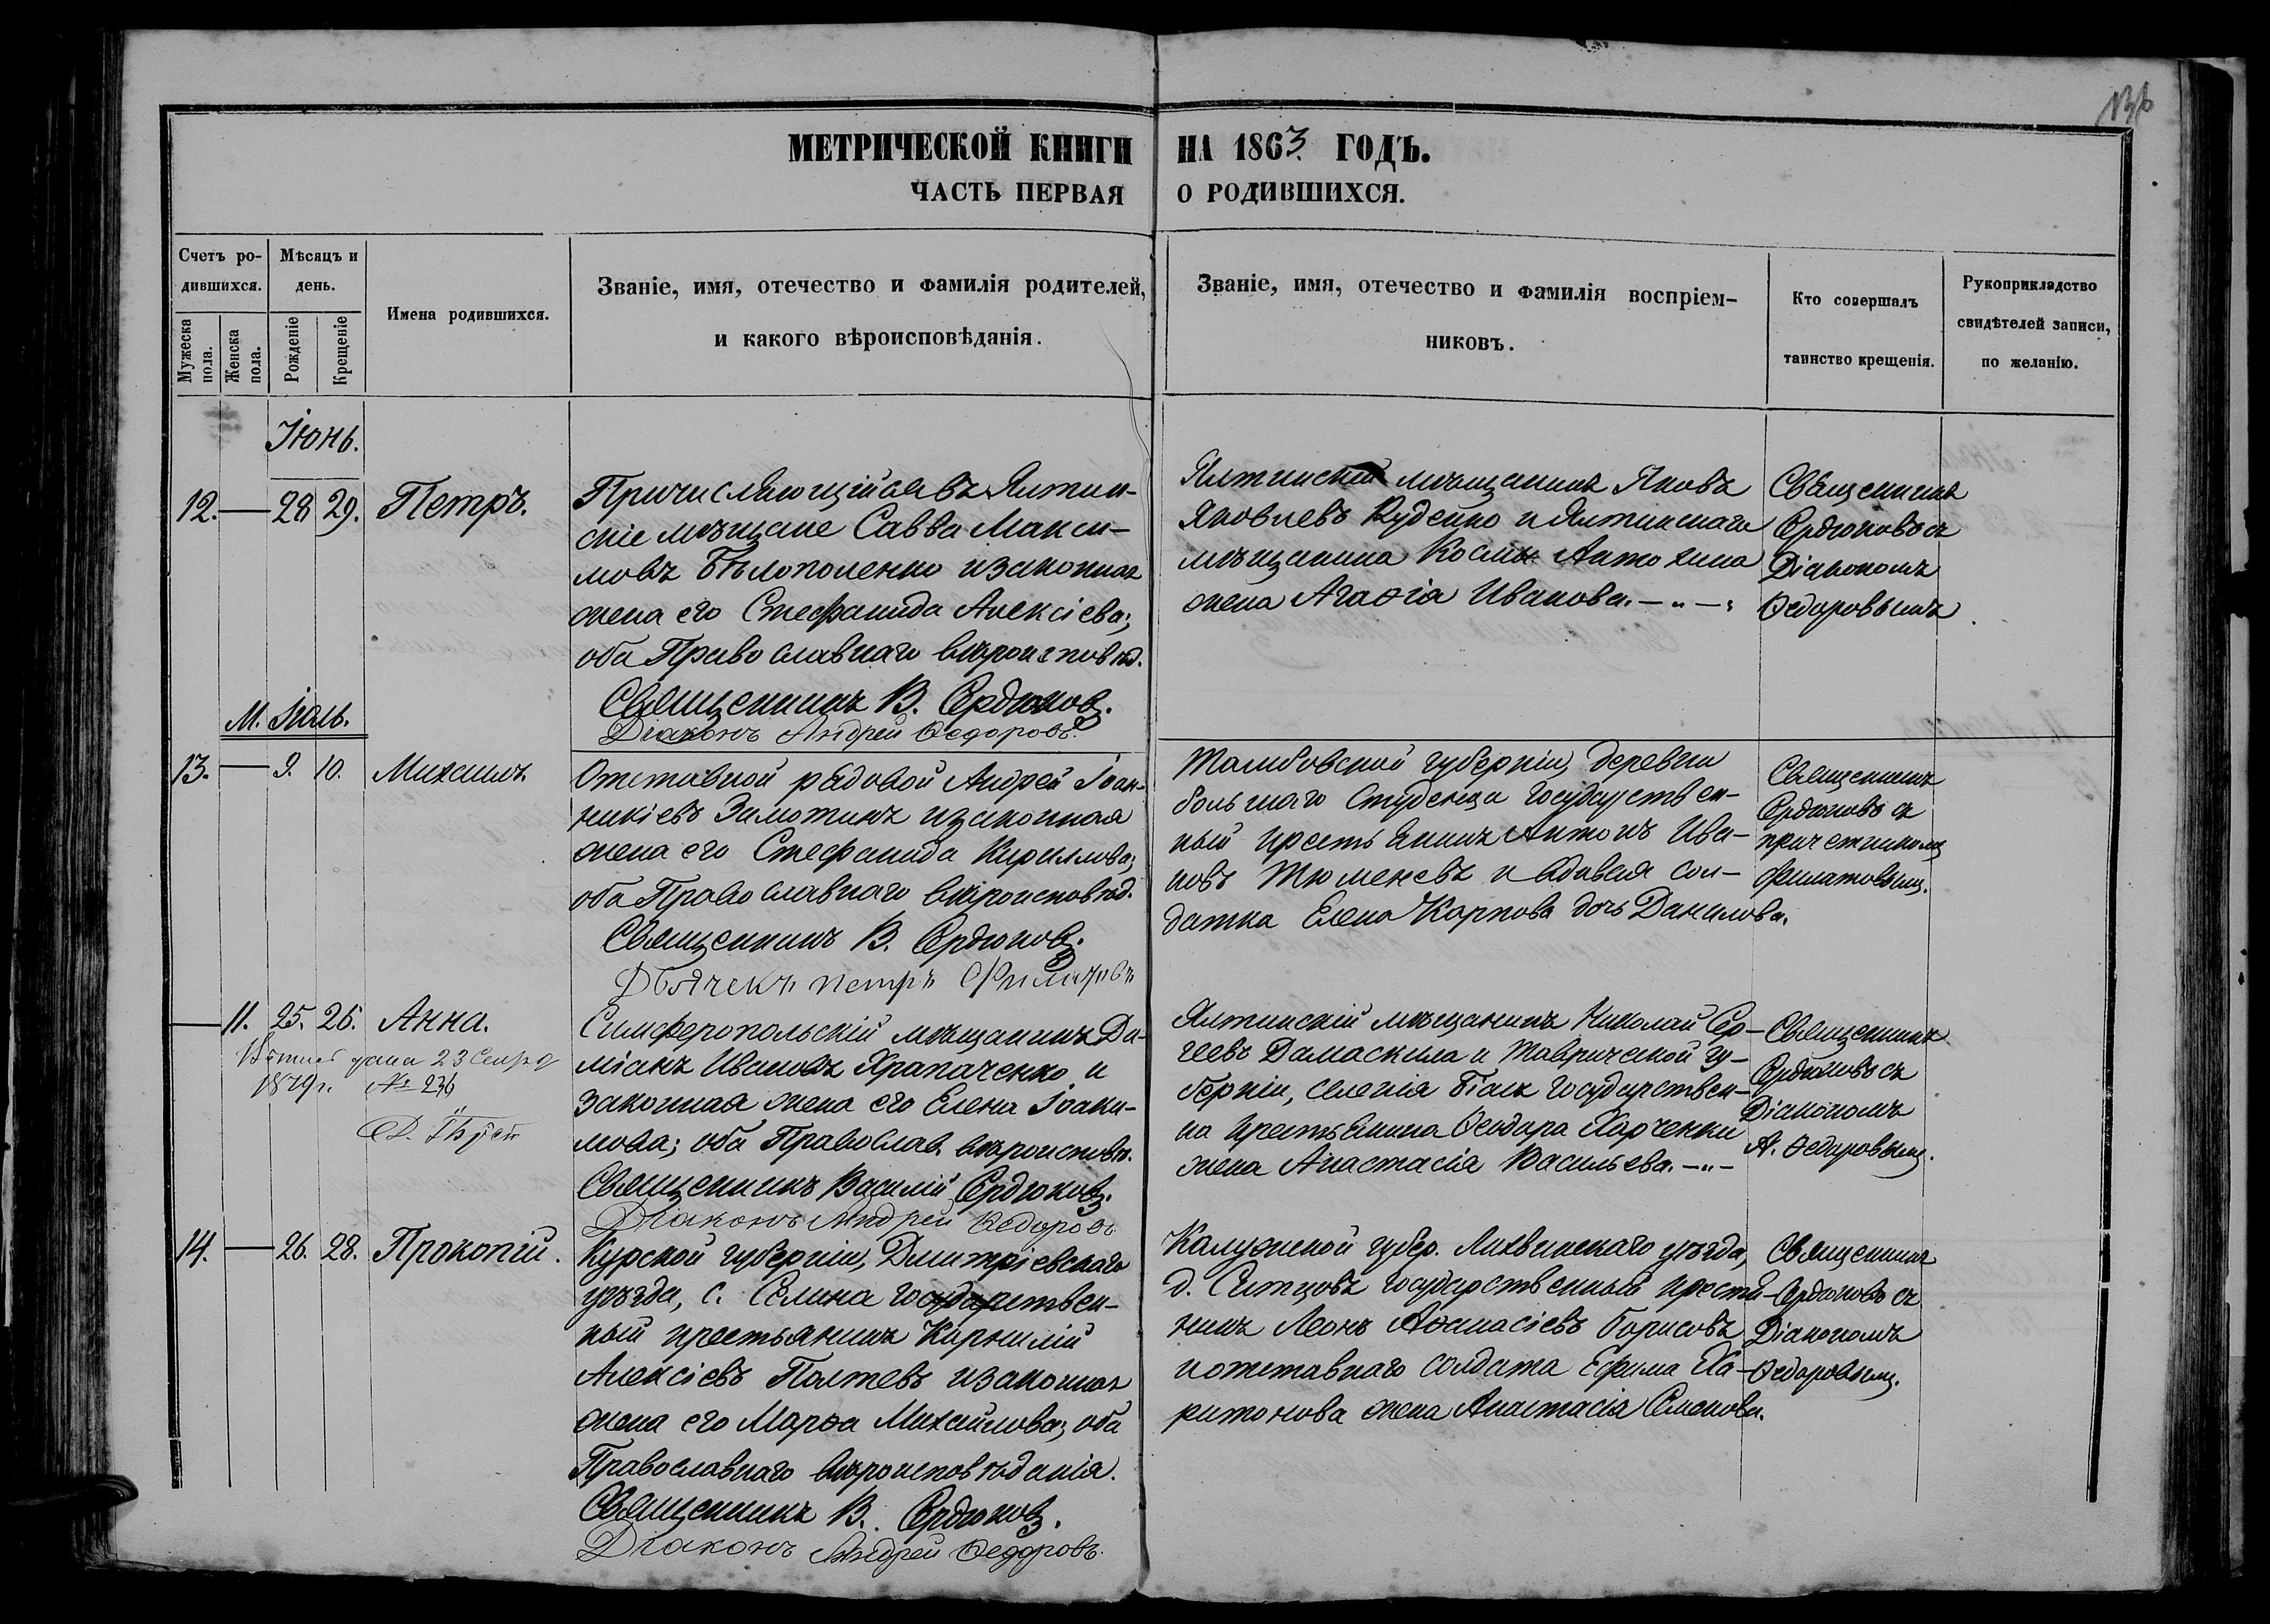 136
МЕТРИЧЕСКОЙ КНИГИ НА 1863 ГОДЪ.
ЧАСТЬ ПЕРВАЯ О РОДИВШИХСЯ.
Счетъ ро-
дившихся.
Мужеска
пола.
Женска
пола.
Мѣсяцъ и
день.
Рожденіе
Крещеніе
Имена родившихся.
Званіе, имя, отечество и фамилія родителей,
и какого вѣроисповѣданія.
Званіе, имя, отечество и фамилія воспріем-
никовъ.
Кто совершалъ
таинство крещенія.
Рукоприкладство
свидѣтелей записи,
по желанію.
Іюнь.
12. — 28 29. Петръ.
Причисляющійся въ Ялтин-
скіе мѣщане Савва Макси-
мовъ Бѣлополенко и законная
жена его Стефанида Алексіева;
оба Православнаго вѣроисповѣд.
Священникъ В. Сердюковъ.
Діаконъ Андрей Ѳедоровъ.
Ялтинскій мѣщанинъ Яковъ
Яковлевъ Кудейко и Ялтинскаго
мѣщанина Космы Антохина
жена Агаѳія Иванова. — „ —
Священникъ
Сердюковъ съ
Діакономъ
Ѳедоровымъ
М. Іюль.
13. — 9. 10. Михаилъ.
Отставной рядовой Андрей Іоан-
никіевъ Замотинъ и законная
жена его Стефанида Кириллова;
оба Православнаго вѣроисповѣд.
Священникъ В. Сердюковъ.
Дьячекъ Петръ Филатовъ
Тамбовской губерніи, деревни
большаго Студенца государствен-
ный крестьянинъ Антонъ Ива-
новъ Тюменевъ и вдовая сол-
датка Елена Карпова дочь Данилова.
Священникъ
Сердюковъ съ
причетникомъ
Филатовымъ.
— 11. 25. 26. Анна.
дана 23
1879 г. № 236
Симферопольскій мѣщанинъ Да-
міанъ Ивановъ Храпаченко и
законная жена его Елена Іоаки-
мова; оба Православ. вѣроисповѣ.
Священникъ Василій Сердюковъ.
Діаконъ Андрей Ѳедоровъ
Ялтинскій мѣщанинъ Николай Сер-
геевъ Дамаскила и Таврической гу-
берніи, селенія Біюк государствен-
на крестьянина Ѳеодора Харченки
жена Анастасія Васильева. — „ —
Священникъ
Сердюковъ съ
Діакономъ
А. Ѳедоровымъ.
14. — 26. 28. Прокопій.
Курской губерніи, Дмитріевскаго
уѣзда, с. Селина государствен-
ный крестьянинъ Корнилій
Алексіевъ Полтевъ и законная
жена его Марѳа Михайлова; оба
Православнаго вѣроисповѣданія.
Священникъ В. Сердюковъ.
Діаконъ Андрей Ѳедоровъ.
Калужской губер. Лихвинскаго уѣзда,
д. Ситцовъ государственный крестья-
нинъ Леонъ Аѳанасіевъ Борисовъ
и отставнаго солдата Ефима Ха-
ритонова жена Анастасія Семенова.
Священникъ
Сердюковъ съ
Діакономъ
Ѳедоровымъ.